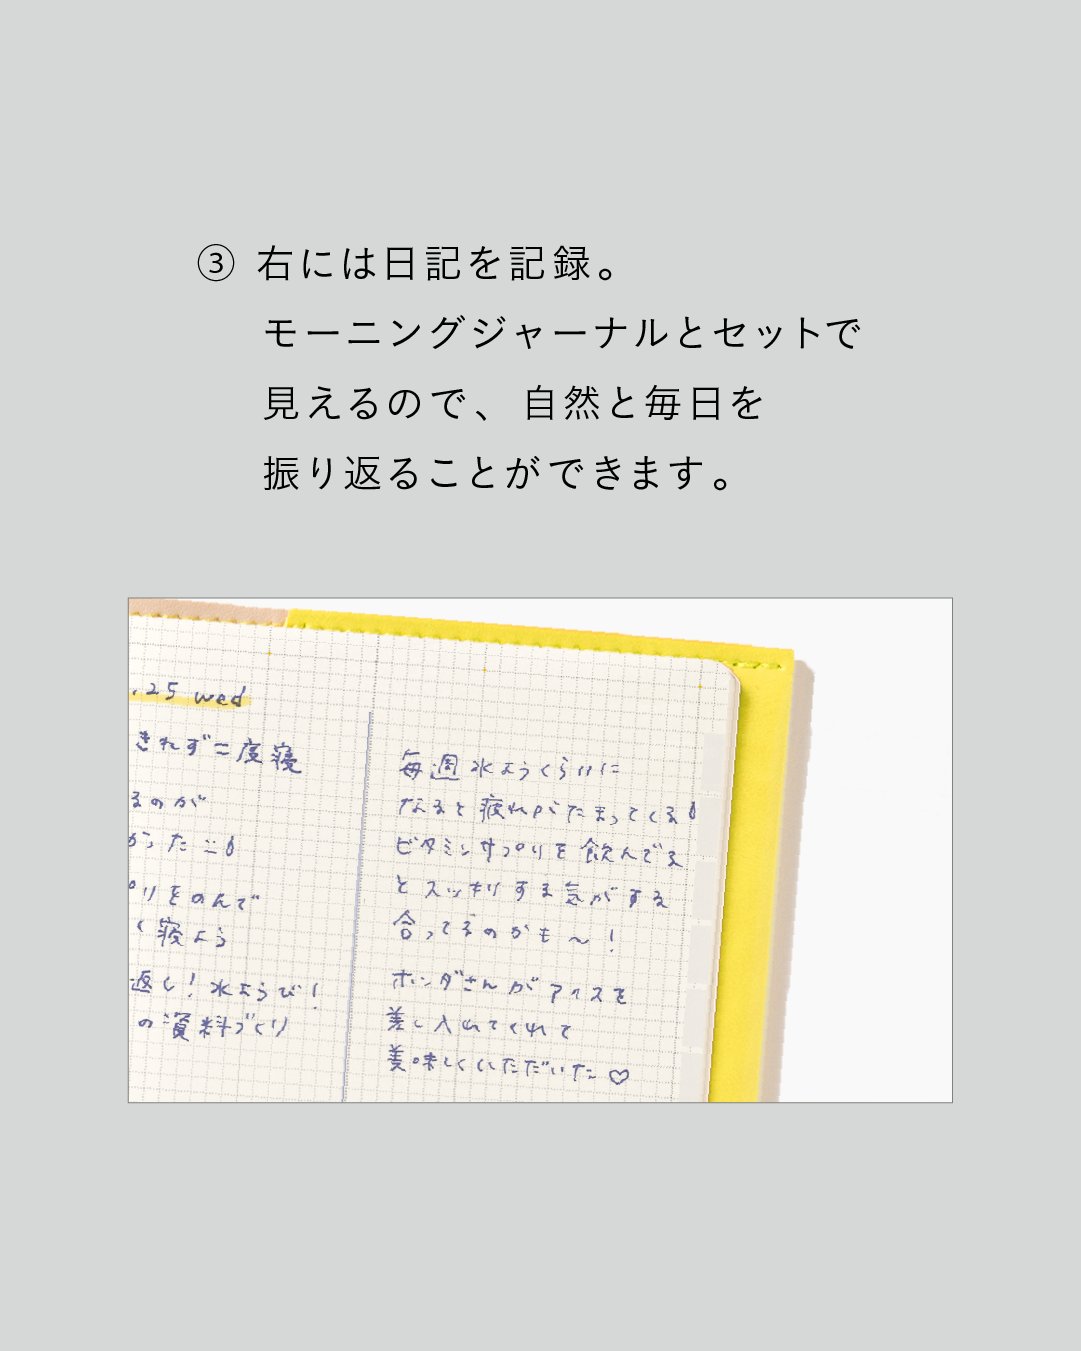 ③ 右には日記を記録。
モーニングジャーナルとセットで
見えるので、自然と毎日を
振り返ることができます。
.25 wed
きれず二度寝
るのが
かった
リをのんで
く寝よう
返し！水ようび！
の資料づくり
毎週水ようくらいに
なると疲れがたまってくる
ビタミンサプリを飲んでる
とスッキリする気がする
合ってるのかも〜！
ホンダさんがアイスを
差し入れてくれて
美味しくいただいた♡